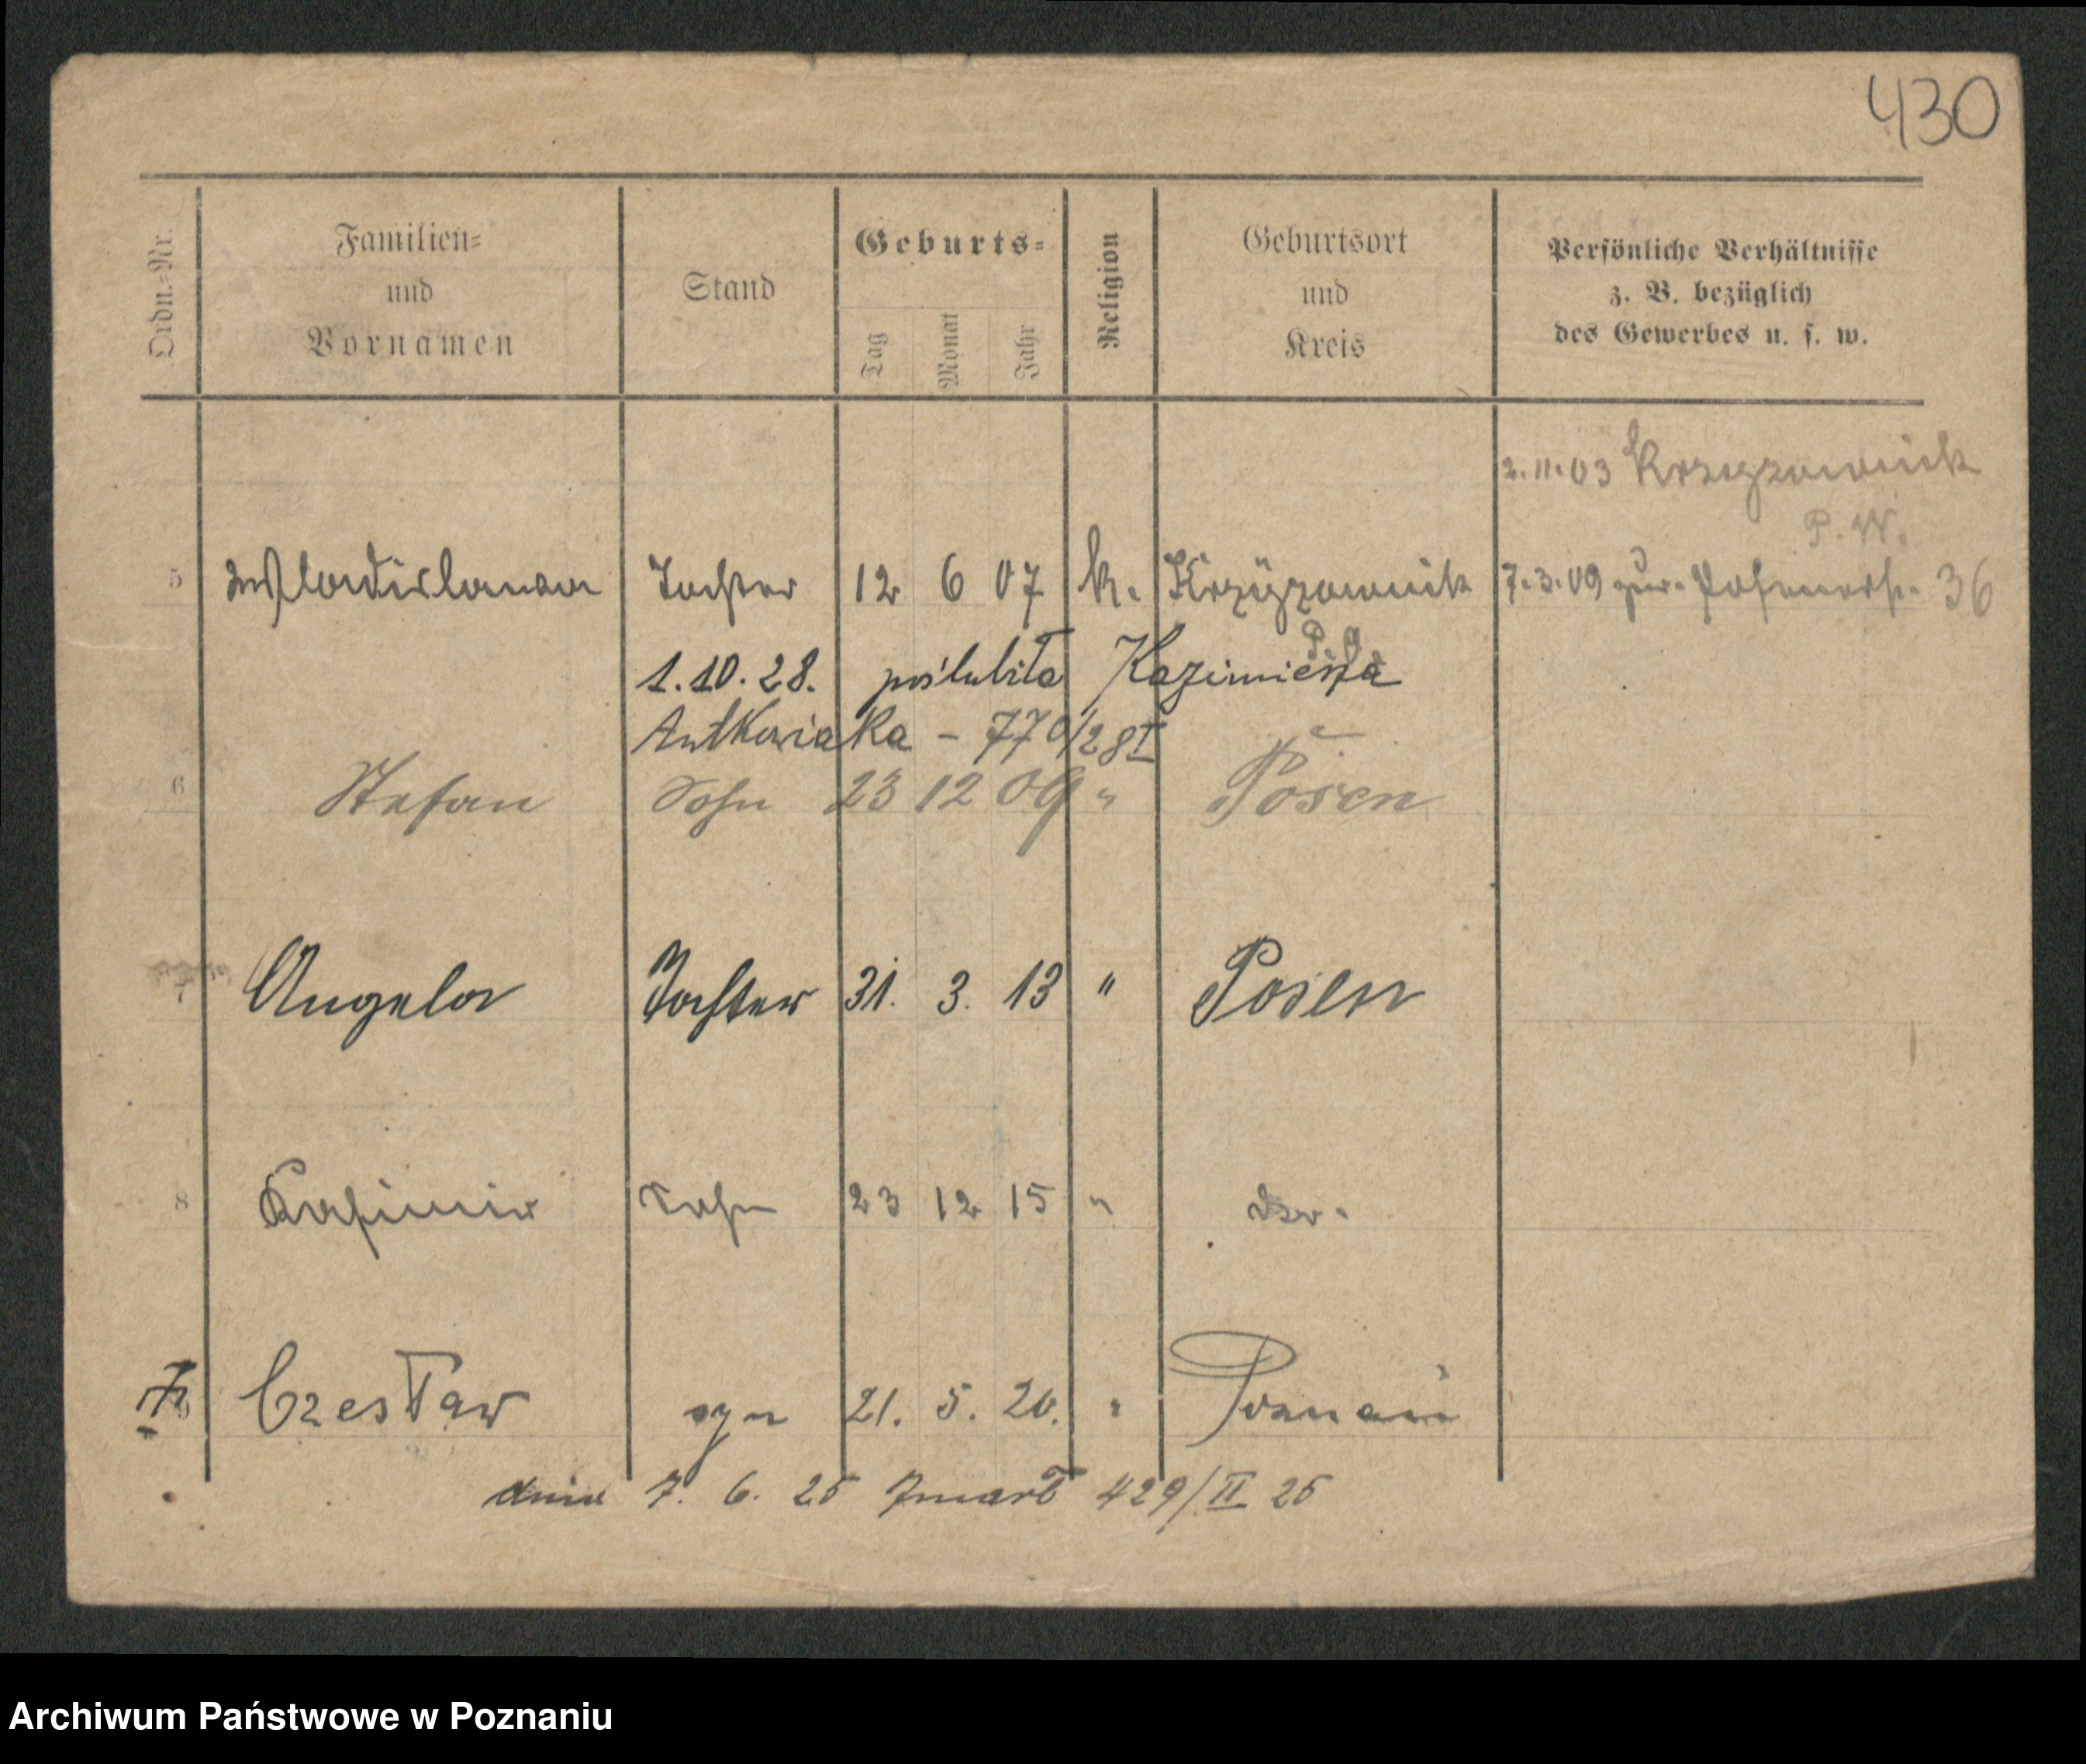 430
Ordn.-Nr.
Familien-
und
Vornamen
Stand
Geburts-
Tag
Monat
Jahr
Religion
Geburtsort
und
Kreis
Persönliche Verhältnisse
z. B. bezüglich
des Gewerbes u. s. w.
2.11.03 Krzyzownik
P. W.
5 Wladislawa Tochter 12 6 07 k. Krzyzownik 7.3.09 zur. 36
P. O.
1.10.28. poślubiła Kazimierza
Antkowiaka - 770/28 I
6 Stefan Sohn 23 12 09 " Posen
7 Angela Tochter 31. 3. 13 " Posen
8 Kasimir Sohn 23 12 15 "
Czesław syn 21. 5. 20. " Poznań
dnia 7. 6. 25 zmarł 429/II 25
Archiwum Państwowe w Poznaniu